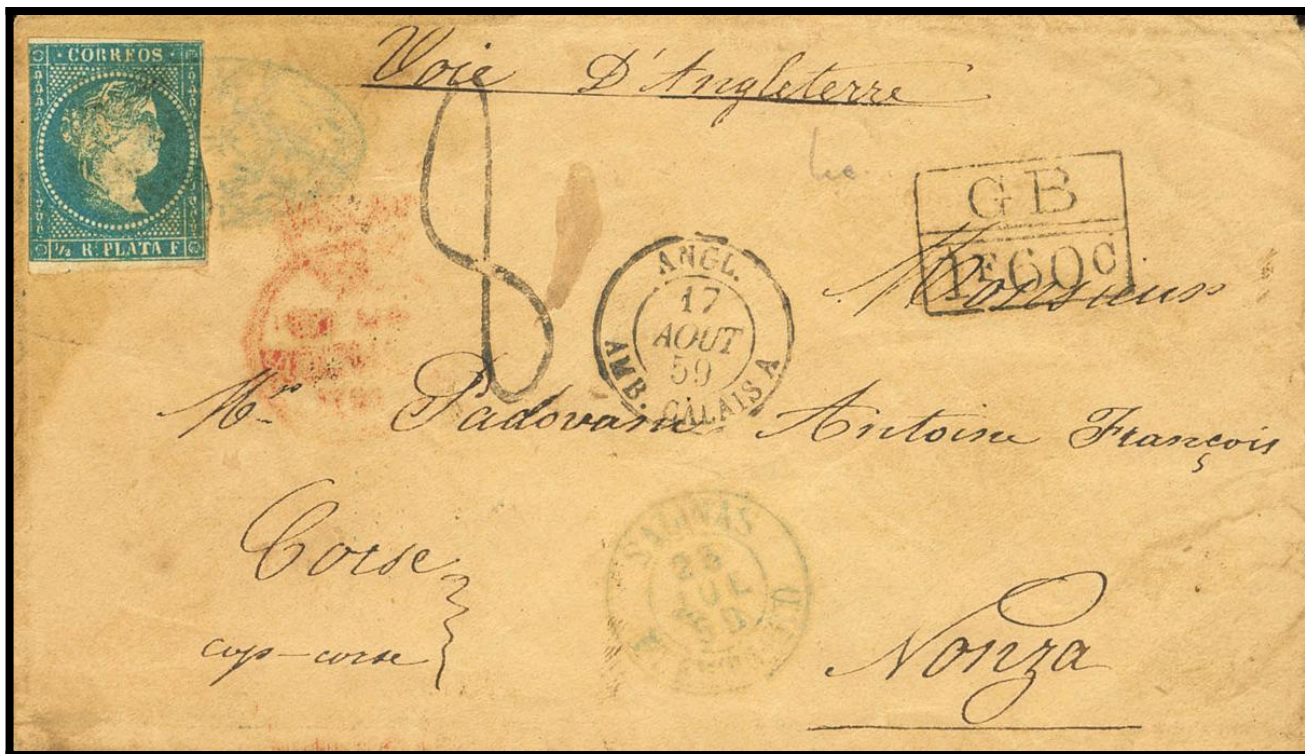 · CORREOS ·
½ R. PLATA F
Voie D'Angleterre
8
GB
1F60C
ANGL.
17
AOUT
59
AMB. CALAIS A
Monsieur
Mr Padovani Antoine François
Corse
cap-corse
SALINAS
JUL
59
Nonza